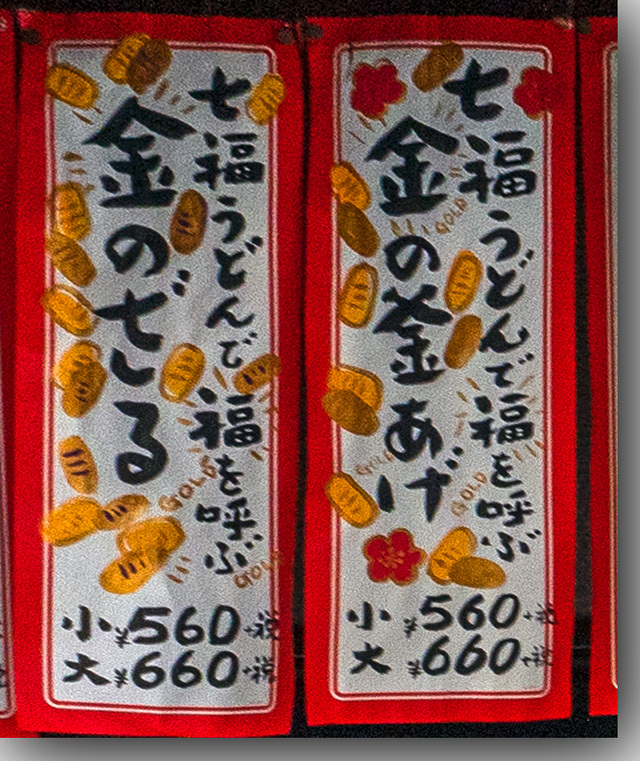 七福うどんで福を呼ぶ
金のざる
GOLD
GOLD
小 ¥560+税
大 ¥660+税
七福うどんで福を呼ぶ
金の釜あげ
GOLD
GOLD
GOLD
小 ¥560+税
大 ¥660+税